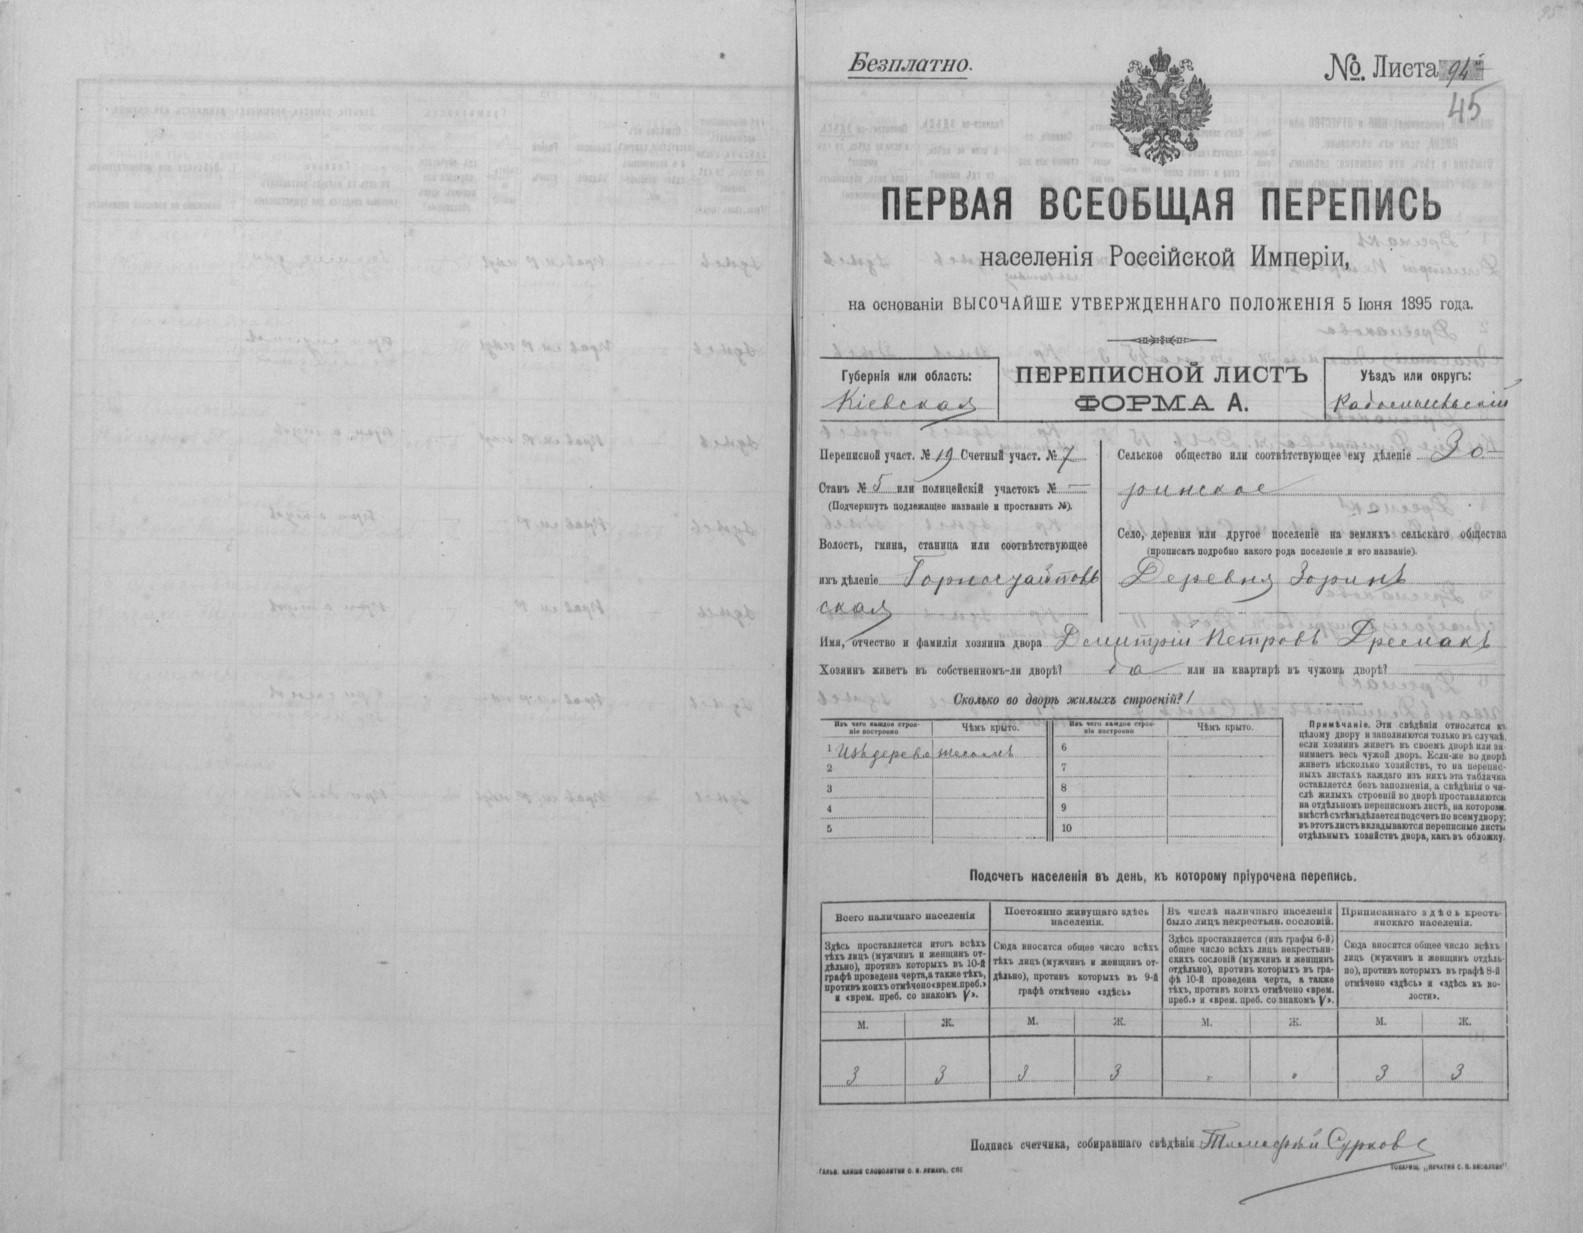 95
Безплатно.
№. Листа 94
45
ПЕРВАЯ ВСЕОБЩАЯ ПЕРЕПИСЬ
населенія Россійской Имперіи,
на основаніи ВЫСОЧАЙШЕ УТВЕРЖДЕННАГО ПОЛОЖЕНІЯ 5 Іюня 1895 года.
Губернія или область:
Кіевская
ПЕРЕПИСНОЙ ЛИСТЪ
ФОРМА А.
Уѣздъ или округъ:
Радомысльскій
Переписной участ. № 19 Счетный участ. № 7
Станъ № 5 или полицейскій участокъ № —
(Подчеркнуть надлежащее названіе и проставить №).
Волость, гмина, станица или соотвѣтствующее
имъ дѣленіе Горностайпов
ская
Сельское общество или соотвѣтствующее ему дѣленіе Зо
ринское
Село, деревня или другое поселеніе на земляхъ сельскаго общества
(прописать подробно какого рода поселеніе и его названіе).
Деревня Зоринъ
Имя, отчество и фамилія хозяина двора Дмитрій Петровъ Дремакъ
Хозяинъ живетъ въ собственномъ-ли дворѣ? да или на квартирѣ въ чужомъ дворѣ?
Сколько во дворѣ жилыхъ строеній? 1
Изъ чего каждое строе-
ніе построено
Чѣмъ крыто.
Изъ чего каждое строе-
ніе построено
Чѣмъ крыто.
1 Изъ дерева
6
2
7
3
8
4
9
5
10
Примѣчаніе. Эти свѣдѣнія относятся къ
цѣлому двору и заполняются только въ случаѣ,
если хозяинъ живетъ въ своемъ дворѣ или за-
нимаетъ весь чужой дворъ. Если-же во дворѣ
живетъ нѣсколько хозяйствъ, то на перепис-
ныхъ листахъ каждаго изъ нихъ эта табличка
оставляется безъ заполненія, а свѣдѣнія о чи-
слѣ жилыхъ строеній во дворѣ проставляются
на отдѣльномъ переписномъ листѣ, на которомъ
вмѣстѣ съ тѣмъ дѣлается подсчетъ по всему двору;
въ этотъ листъ вкладываются переписные листы
отдѣльныхъ хозяйствъ двора, какъ въ обложку.
Подсчетъ населенія въ день, къ которому пріурочена перепись.
Всего наличнаго населенія
Здѣсь проставляется итогъ всѣхъ
тѣхъ лицъ (мужчинъ и женщинъ от-
дѣльно), противъ которыхъ въ 10-й
графѣ проведена черта, а также тѣхъ,
противъ коихъ отмѣчено «врем. преб.»
и «врем. преб. со знакомъ V».
Постоянно живущаго здѣсь
населенія.
Сюда вносится общее число всѣхъ
тѣхъ лицъ (мужчинъ и женщинъ от-
дѣльно), противъ которыхъ въ 9-й
графѣ отмѣчено «здѣсь»
Въ числѣ наличнаго населенія
было лицъ некрестьян. сословій.
Здѣсь проставляется (изъ графы 6-й)
общее число всѣхъ лицъ некрестьян-
скихъ сословій (мужчинъ и женщинъ
отдѣльно), противъ которыхъ въ гра-
фѣ 10-й проведена черта, а также
тѣхъ, противъ коихъ отмѣчено «врем.
преб.» и «врем. преб. со знакомъ V».
Приписаннаго здѣсь кресть-
янскаго населенія.
Сюда вносится общее число всѣхъ
лицъ (мужчинъ и женщинъ отдѣль-
но), противъ которыхъ въ графѣ 8-й
отмѣчено «здѣсь» и «здѣсь въ во-
лости».
М. Ж. М. Ж. М. Ж. М. Ж.
3 3 3 3 " " 3 3
Подпись счетчика, собиравшаго свѣдѣнія Тимофѣй Сурковъ
ГАЛЬВ. КЛИШЕ СЛОВОЛИТНИ О. И. ЛЕМАНЪ, СПБ
ТОВАРИЩ. „ПЕЧАТНЯ С. П. ЯКОВЛЕВА"